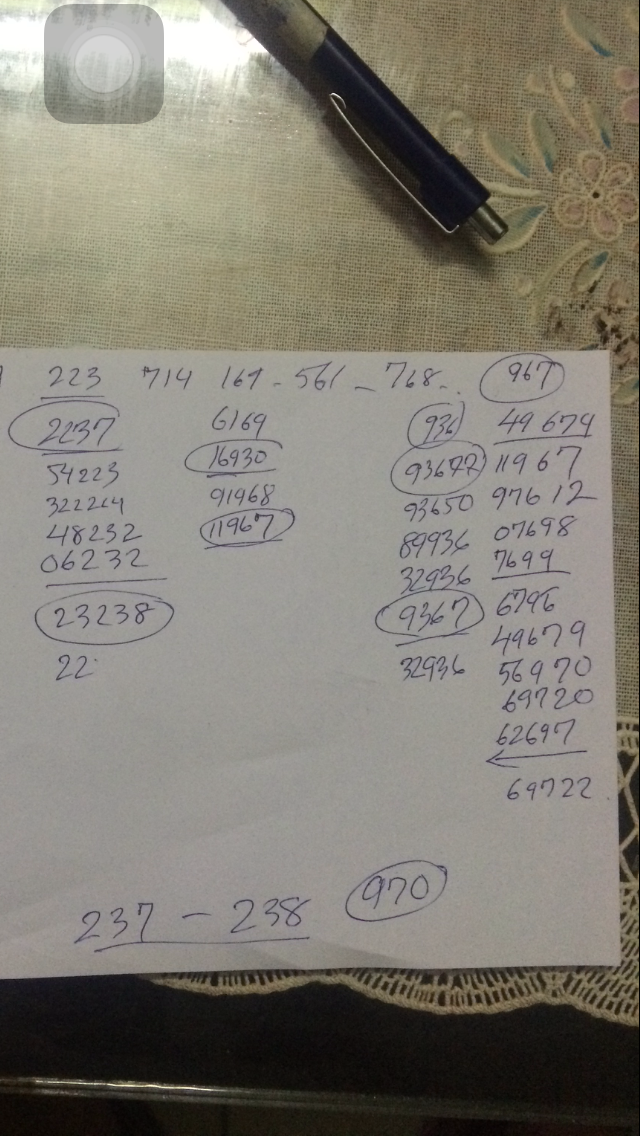 223 714 169 - 561 - 768 - 967
2237
54223
322214
48232
06232
23238
22
6169
16930
91968
11967
936
93677
93650
89936
32936
9367
32936
49679
11967
97612
07698
7699
6796
49679
56970
69720
62697
69722
237 - 238 970